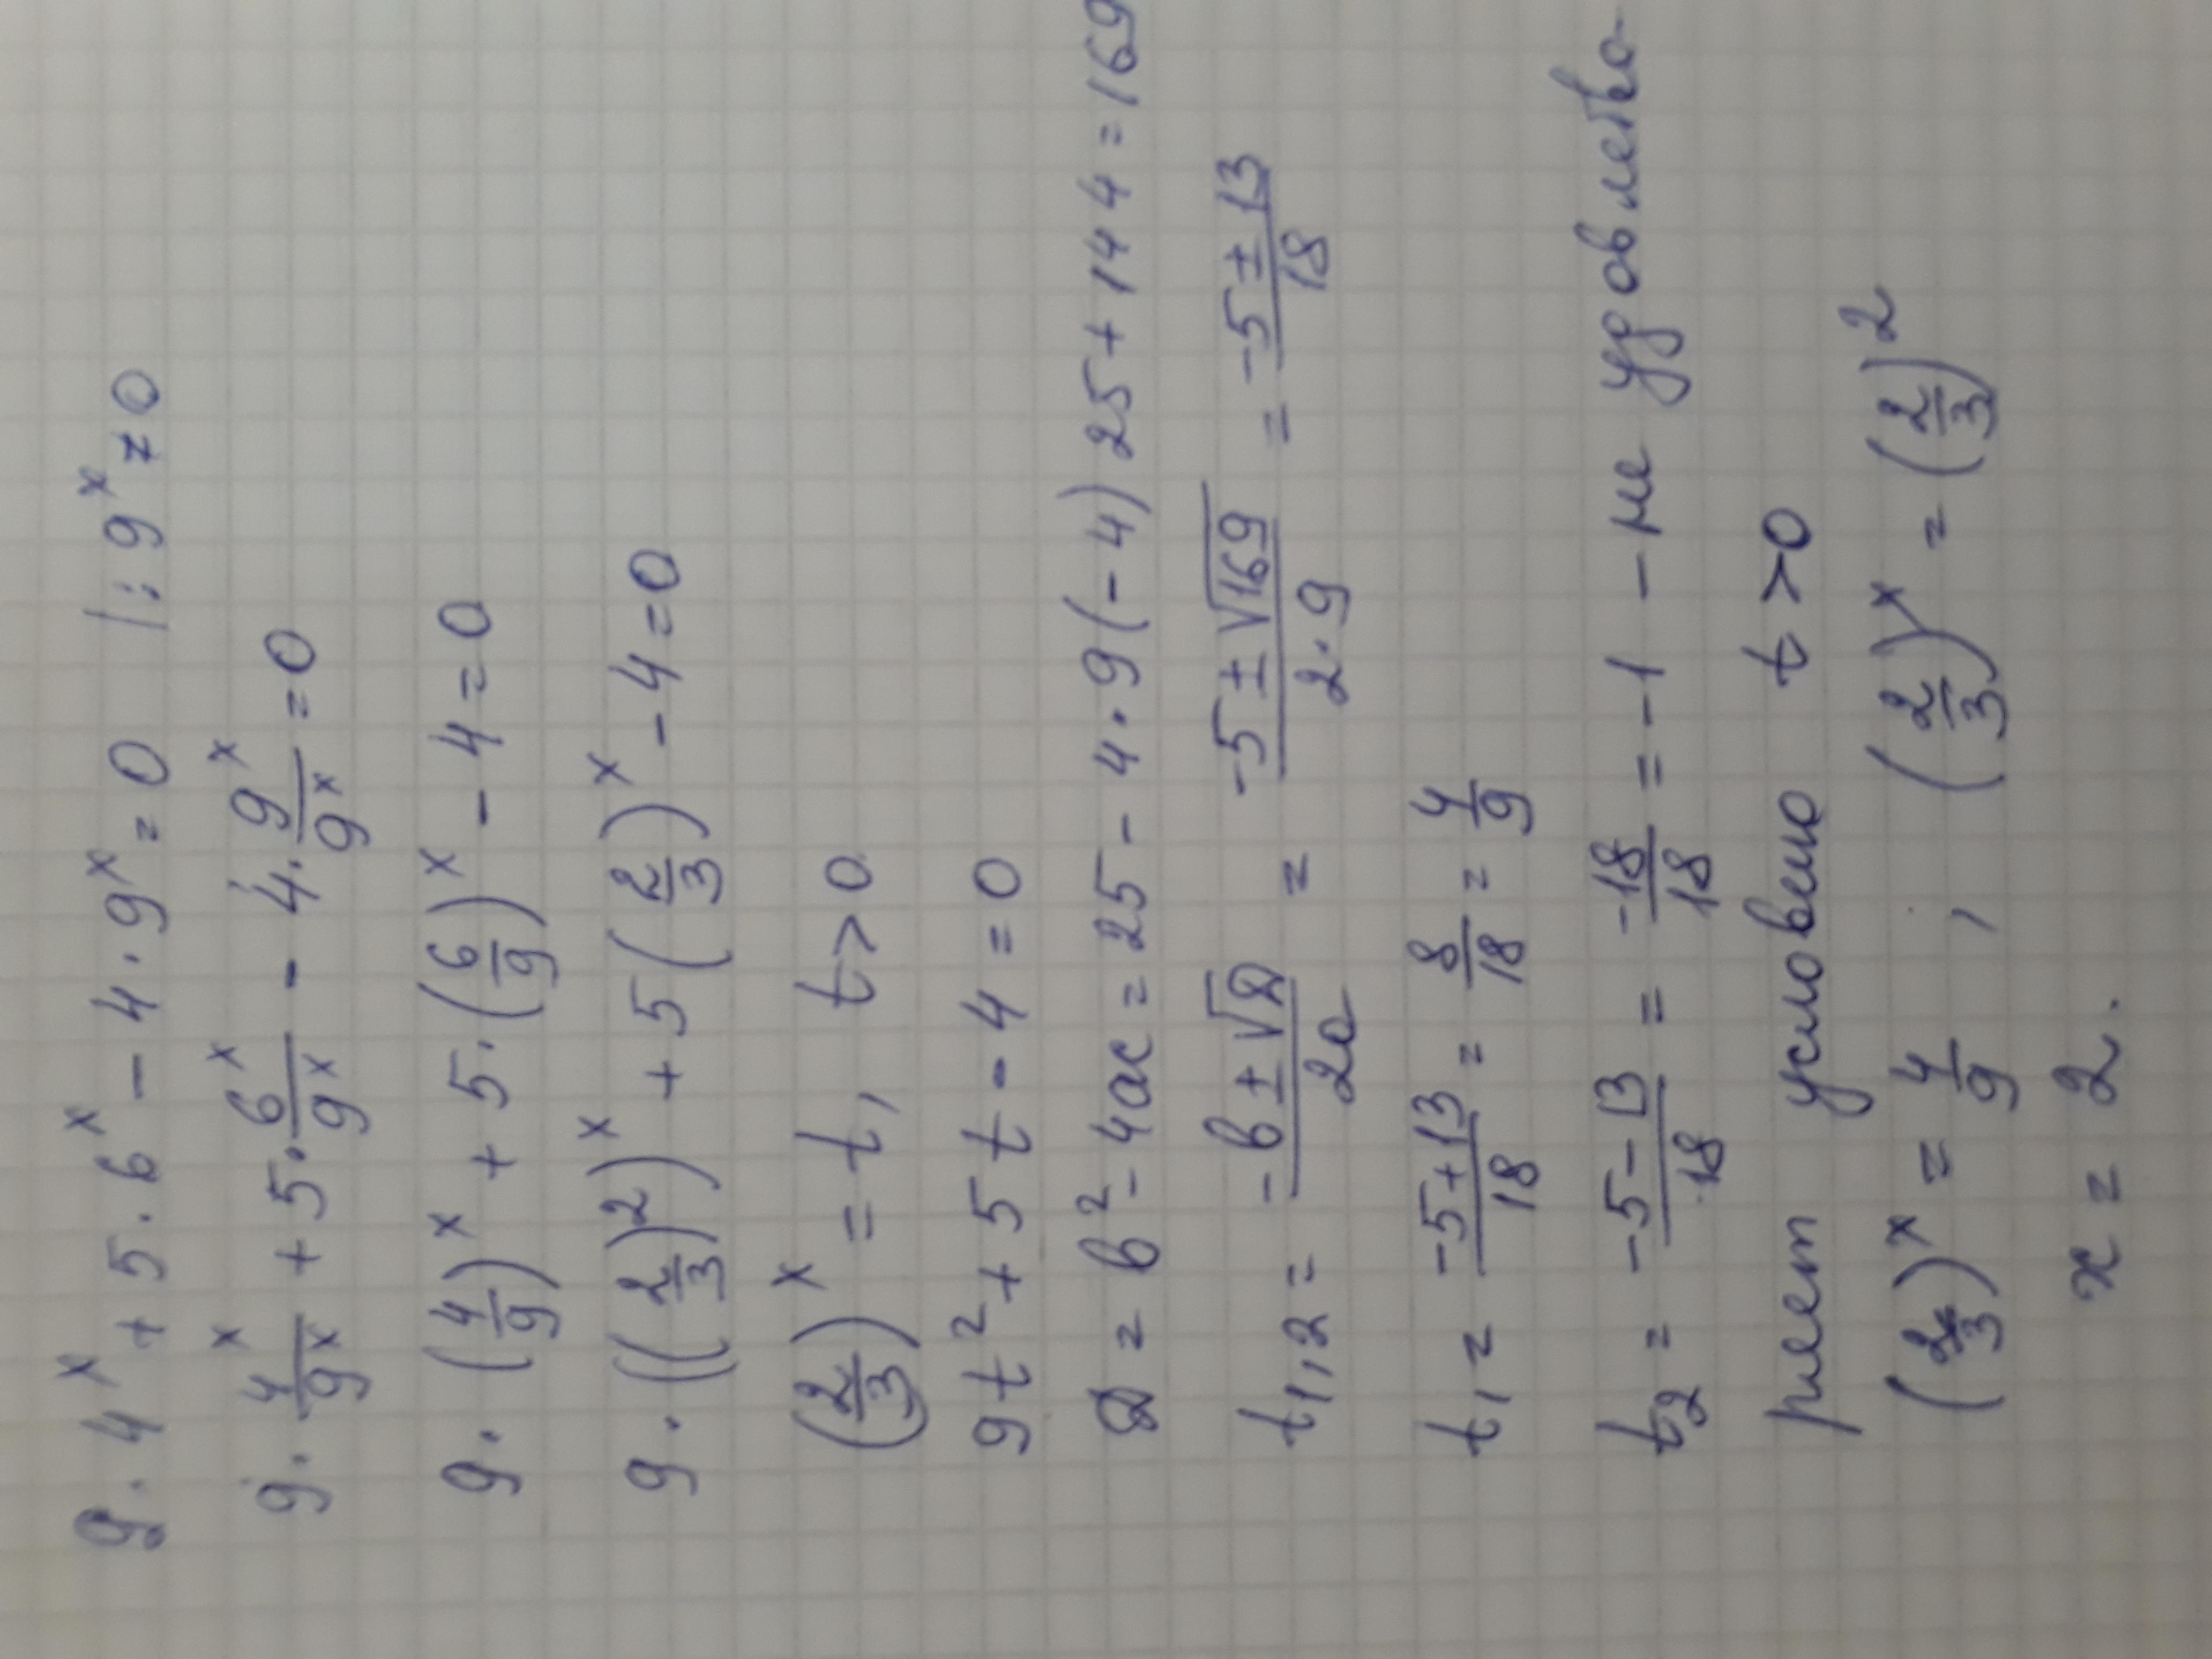 9 · 4ˣ + 5 · 6ˣ − 4 · 9ˣ = 0 |: 9ˣ ≠ 0
9 · 4ˣ/9ˣ + 5 · 6ˣ/9ˣ − 4 · 9ˣ/9ˣ = 0
9 · (4/9)ˣ + 5 · (6/9)ˣ − 4 = 0
9 · ((2/3)²)ˣ + 5 (2/3)ˣ − 4 = 0
(2/3)ˣ = t, t > 0
9t² + 5t − 4 = 0
D = b² − 4ac = 25 − 4 · 9 (−4) 25 + 144 = 169
t₁,₂ = (−b ± √D)/2a = (−5 ± √169)/(2 · 9) = (−5 ± 13)/18
t₁ = (−5 + 13)/18 = 8/18 = 4/9
t₂ = (−5 − 13)/18 = −18/18 = −1 − не удовлетво-
ряет условию t > 0
(2/3)ˣ = 4/9 , (2/3)ˣ = (2/3)²
x = 2.